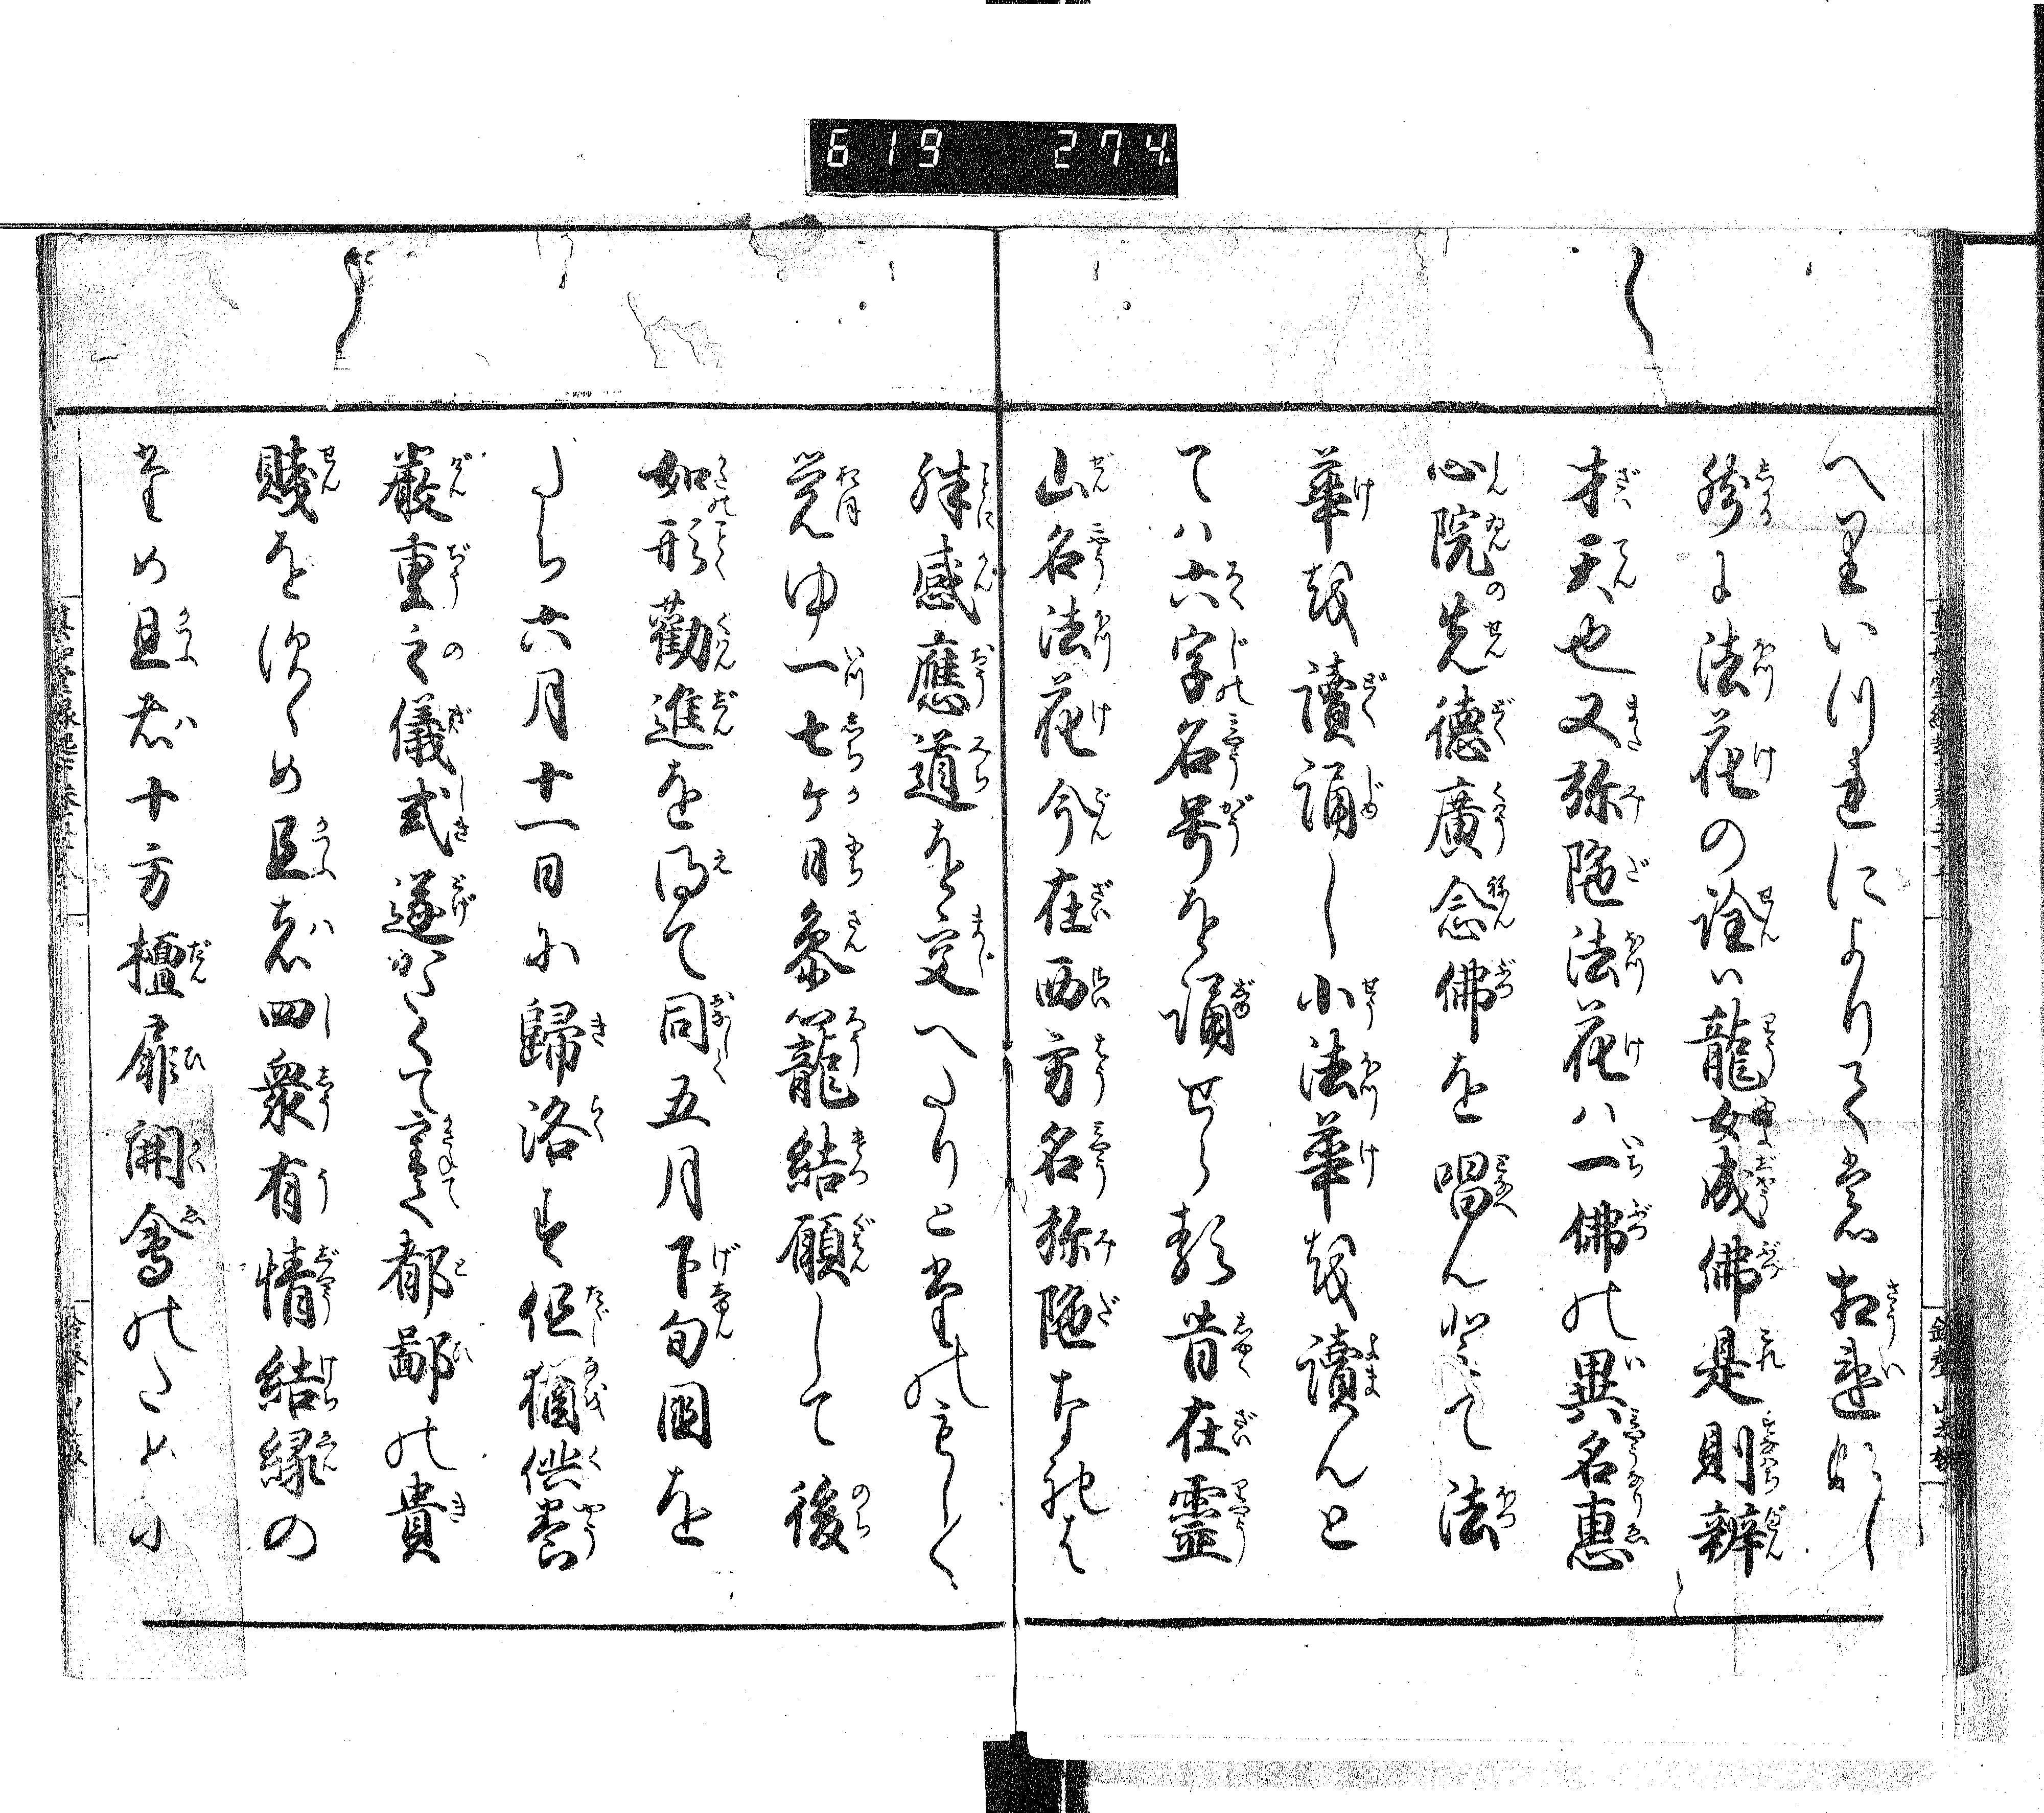 619 274
へりいづれによりても意相違なし
然に法花の詮ハ龍女成佛是則辨
才天也又弥陁法花ハ一佛の異名恵
心院の先徳廣念佛を唱んにて法
華を讀誦し小法華を讀んと
てハ六字名号を誦せら類昔在靈
山名法花今在西方名弥陁なれは
殊感應道を交へたりと
覚ゆ一七ヶ日参籠結願して後
如形勸進を得て同五月下旬国を
たち六月十一日に歸洛す但猶供養
嚴重之儀式遂かたくて重て都鄙の貴
賤をすゝめ且者四衆有情結縁の
ため且者十方檀扉開龕のために